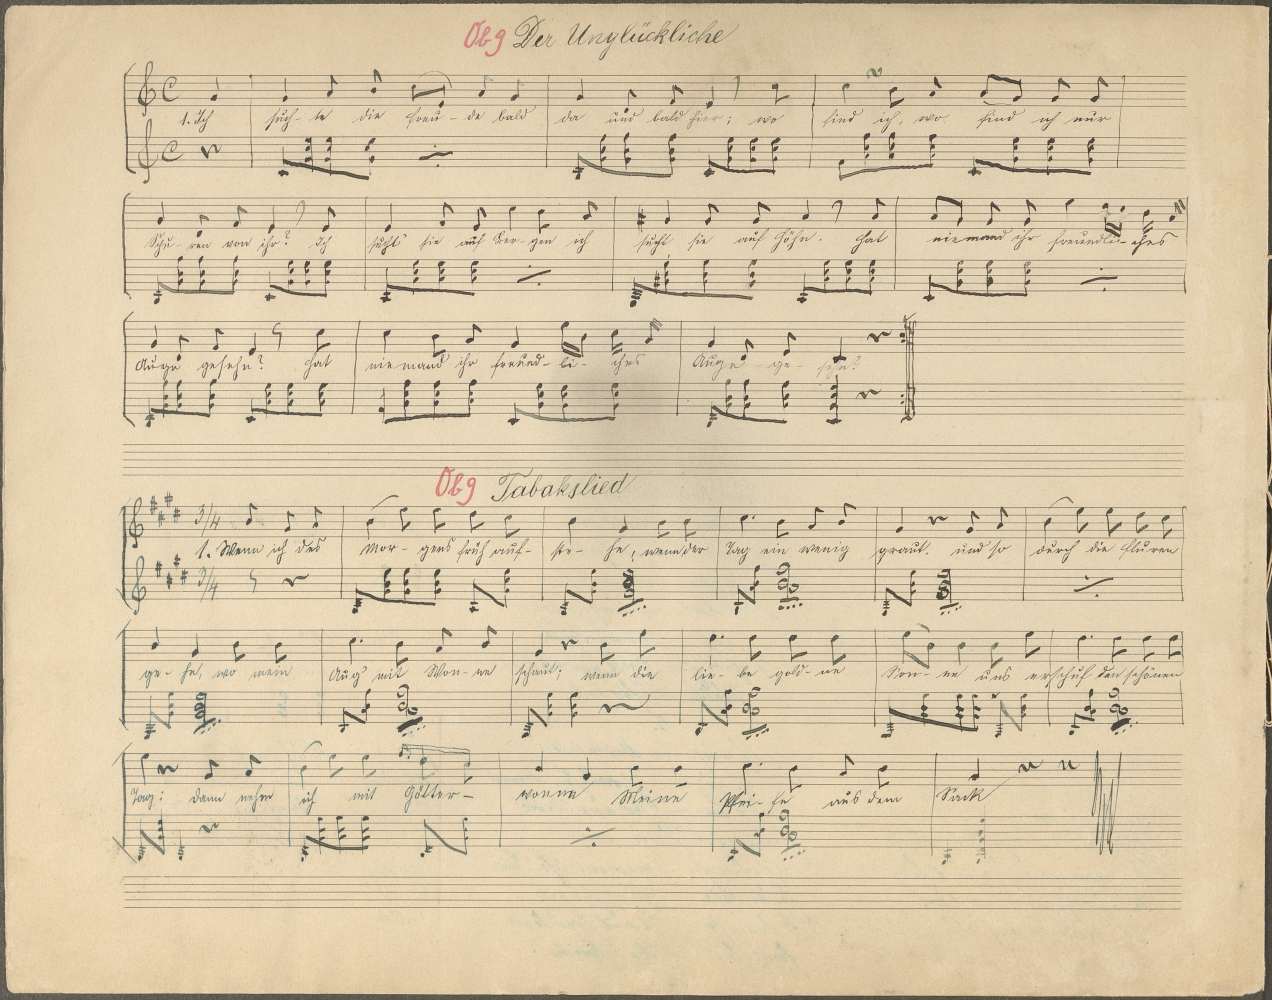 Obg Der Unglückliche
1. Ich such-te die Freu-de bald da und bald hier; wo find ich, wo find ich nur
Spu-ren von ihr? Ich sucht sie auf Ber-gen ich sucht sie auf Höhn. Hat niemand ihr freundli-ches
Auge gesehn? Hat niemand ihr freund-li-ches Auge ge-sehn?
Obg Tabakslied
3/4 1. Wenn ich des Mor-gens früh auf-ste-he, wenn der Tag ein wenig graut. und so durch die Fluren
3/4
ge-he, wo mein Aug' mit Won-ne schaut; wenn die lie-be gold-ne Son-ne uns erschuf den schönen
Tag: dann nehm ich mit Götter-wonne Meine Pfei-fe aus dem Sack